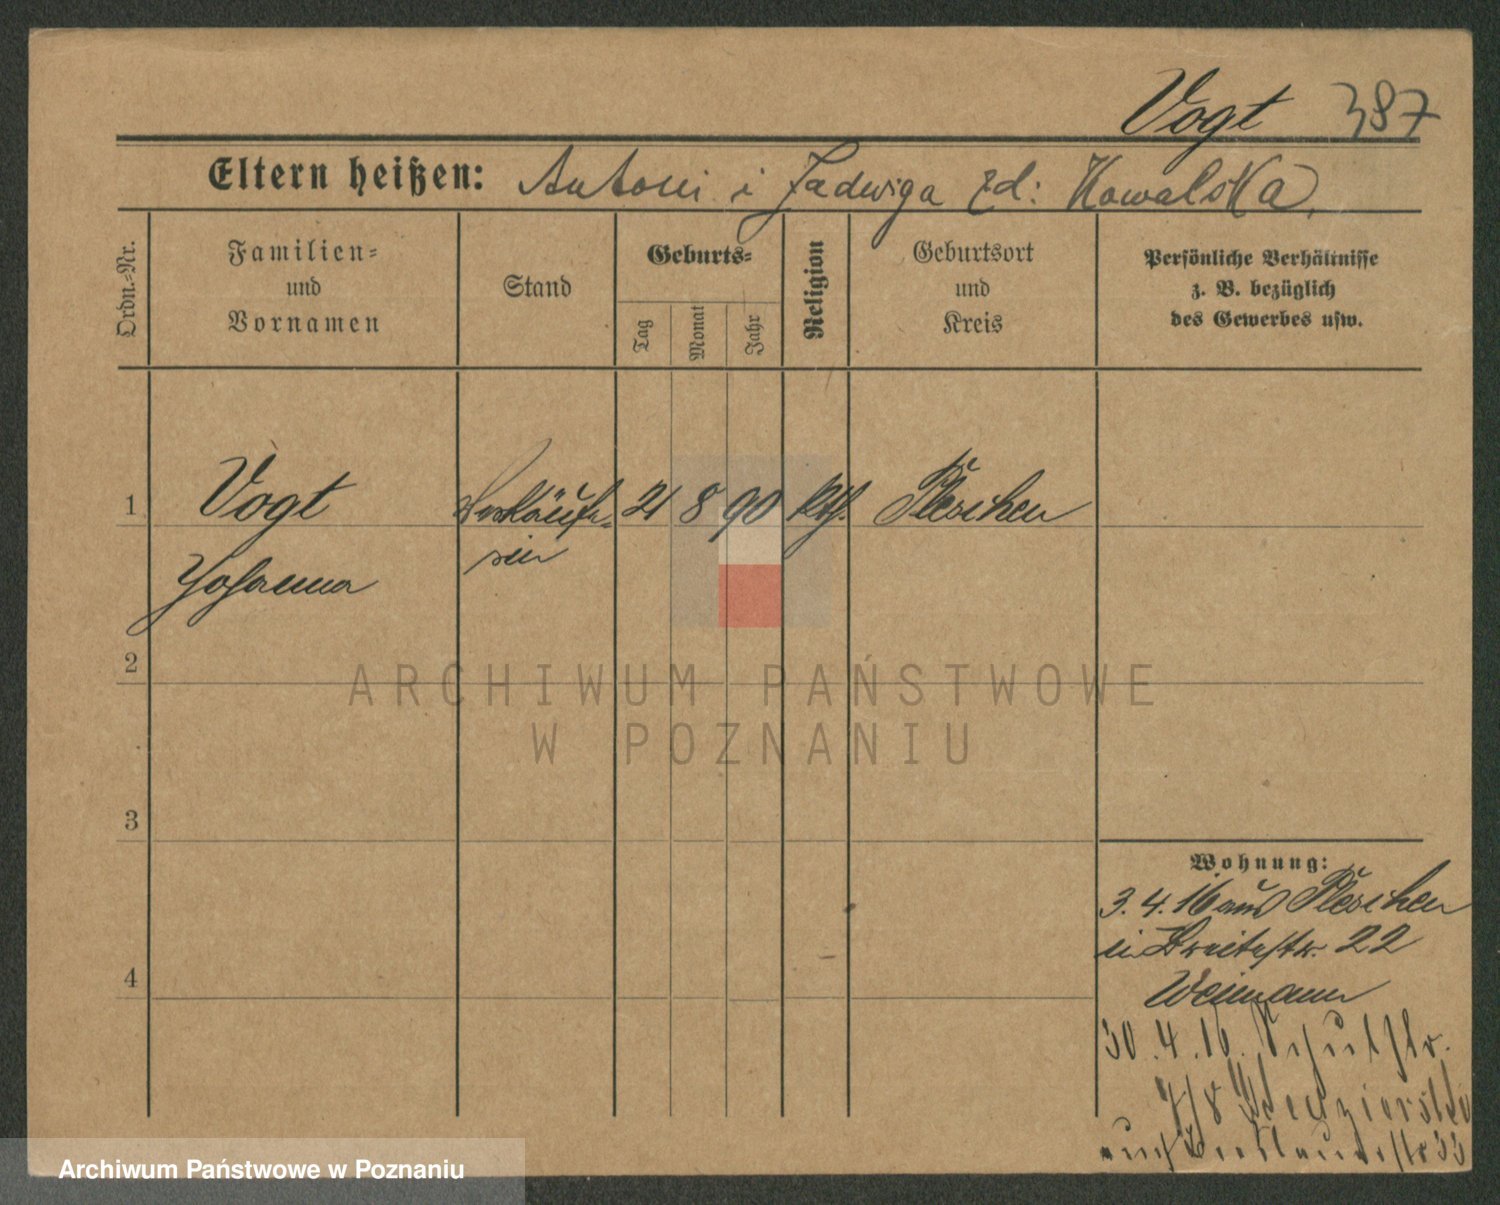 Vogt 387
Eltern heißen: Antoni i Jadwiga zd: Kowalska.
Ordn.-Nr.
Familien-
und
Vornamen
Stand
Geburts-
Tag
Monat
Jahr
Religion
Geburtsort
und
Kreis
Persönliche Verhältnisse
z. B. bezüglich
des Gewerbes usw.
1 Vogt Verkäufe- 21 8 90 kth. Pleschen
rin
Johanna
2
3
4
Wohnung:
3. 4. 16 aus Pleschen
in Breitestr. 22
Weimann
30. 4. 16. Schulstr.
7/8
nach 33
ARCHIWUM PAŃSTWOWE
W POZNANIU
Archiwum Państwowe w Poznaniu